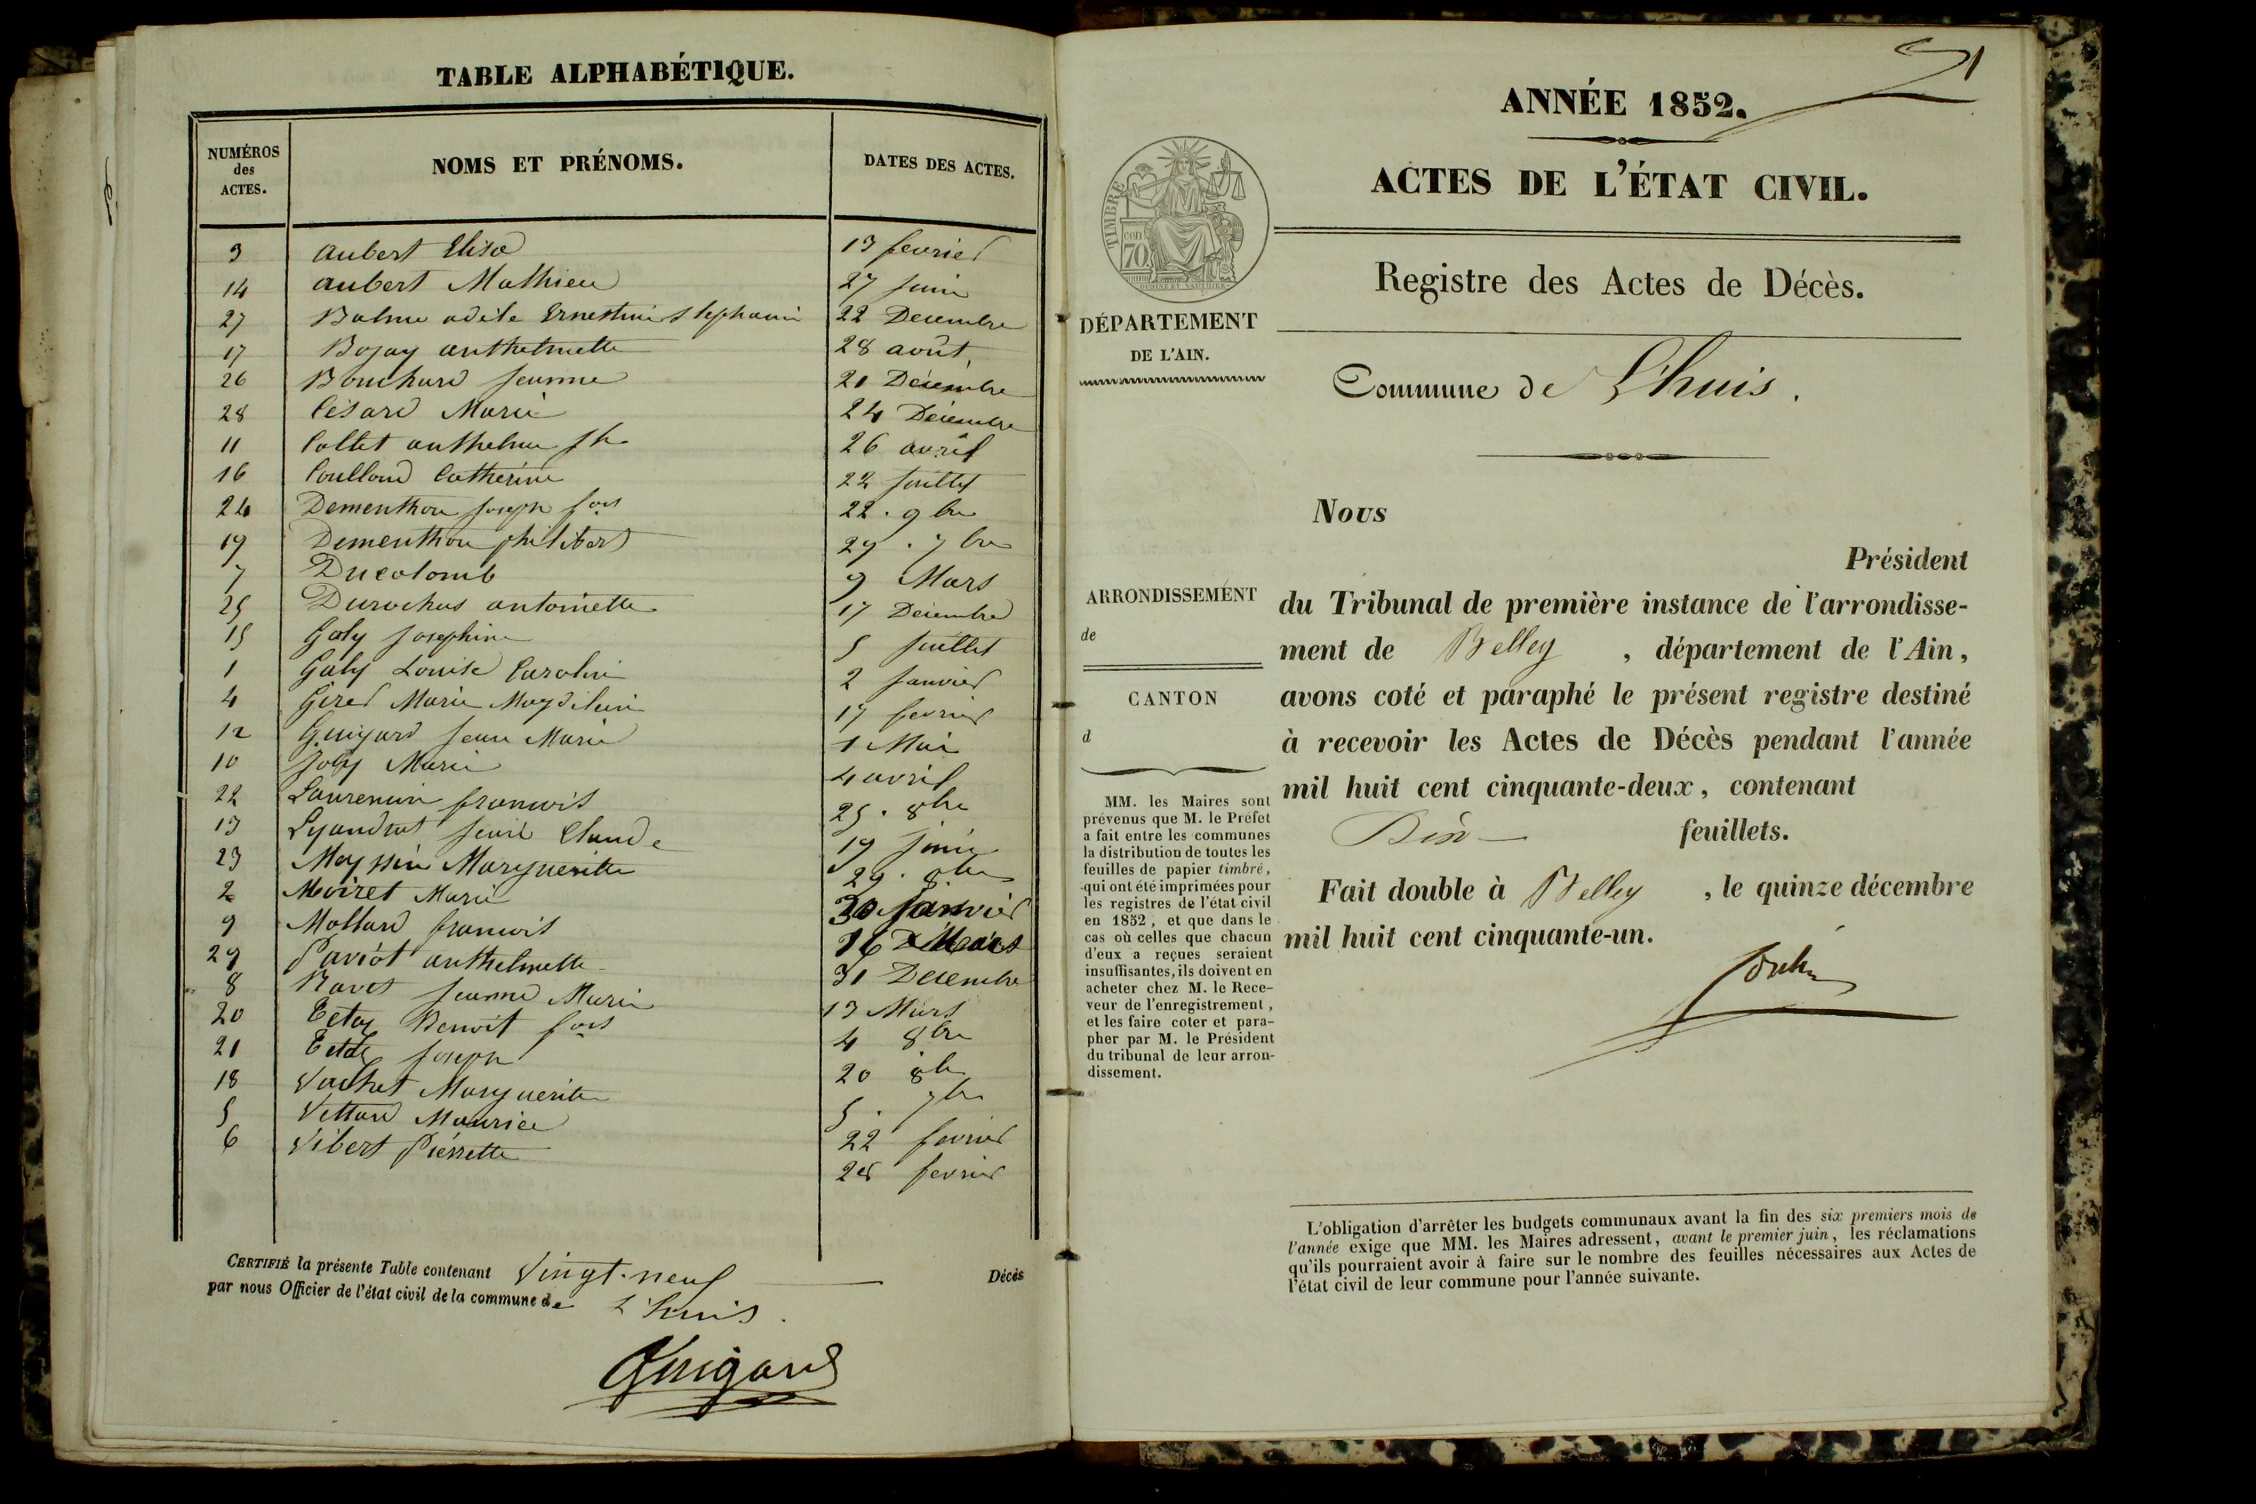 TABLE ALPHABÉTIQUE.
NUMÉROS des ACTES. NOMS ET PRÉNOMS. DATES DES ACTES.
3 Aubert Elisa 13 fevrier
14 Aubert Mathieu 27 Juin
27 Balme adèle Ernestine Stephanie 22 Decembre
17 Bojay anthelmette 28 août
26 Bouchard Jeanne 21 Decembre
28 César Marie 24 Decembre
11 Collet anthelme 26 avril
16 Coulloud Catherine 22 Juillet
24 Dementhon Joseph fois 22 . 9bre
19 Dementhon philibert 29 . 7bre
7 Ducolomb 9 Mars
25 Durochas antoinette 17 Decembre
15 Galy Josephine 5 Juillet
1 Galy Louise Caroline 2 Janvier
4 Gired Marie Magdeleine 17 fevrier
12 Guigard Jean Marie 1 Mai
10 Joly Marie 4 avril
22 Laurencin francois 25 . 8bre
13 Lyandrat Jean Claude 19 Juin
23 Meyssin Marguerite 29 . 8bre
2 Moiret Marie 30 Janvier
9 Mollard francois 16 Mars
29 Paviot anthelmette 31 Decembre
8 Ravet Jeanne Marie 13 Mars
20 Benoit fois 4 8bre
21 Joseph 20 8bre
18 Vachet Marguerite 5 . 7bre
5 Vettard Maurice 22 fevrier
6 Vibert Pierrette 28 fevrier
CERTIFIÉ la présente Table contenant Vingt-neuf Décès
par nous Officier de l'état civil de la commune de L'huis.
Guigard
ANNÉE 1852.
1
ACTES DE L'ÉTAT CIVIL.
TIMBRE
cen
70
Registre des Actes de Décès.
DÉPARTEMENT
DE L'AIN.
Commune de L'huis.
Nous
Président
ARRONDISSEMENT
de
du Tribunal de première instance de l'arrondisse-
ment de Belley , département de l'Ain,
avons coté et paraphé le présent registre destiné
à recevoir les Actes de Décès pendant l'année
mil huit cent cinquante-deux, contenant
Dix feuillets.
Fait double à Belley , le quinze décembre
mil huit cent cinquante-un.
CANTON
d
MM. les Maires sont
prévenus que M. le Préfet
a fait entre les communes
la distribution de toutes les
feuilles de papier timbré,
qui ont été imprimées pour
les registres de l'état civil
en 1852, et que dans le
cas où celles que chacun
d'eux a reçues seraient
insuffisantes, ils doivent en
acheter chez M. le Rece-
veur de l'enregistrement,
et les faire coter et para-
pher par M. le Président
du tribunal de leur arron-
dissement.
L'obligation d'arrêter les budgets communaux avant la fin des six premiers mois de
l'année exige que MM. les Maires adressent, avant le premier juin, les réclamations
qu'ils pourraient avoir à faire sur le nombre des feuilles nécessaires aux Actes de
l'état civil de leur commune pour l'année suivante.